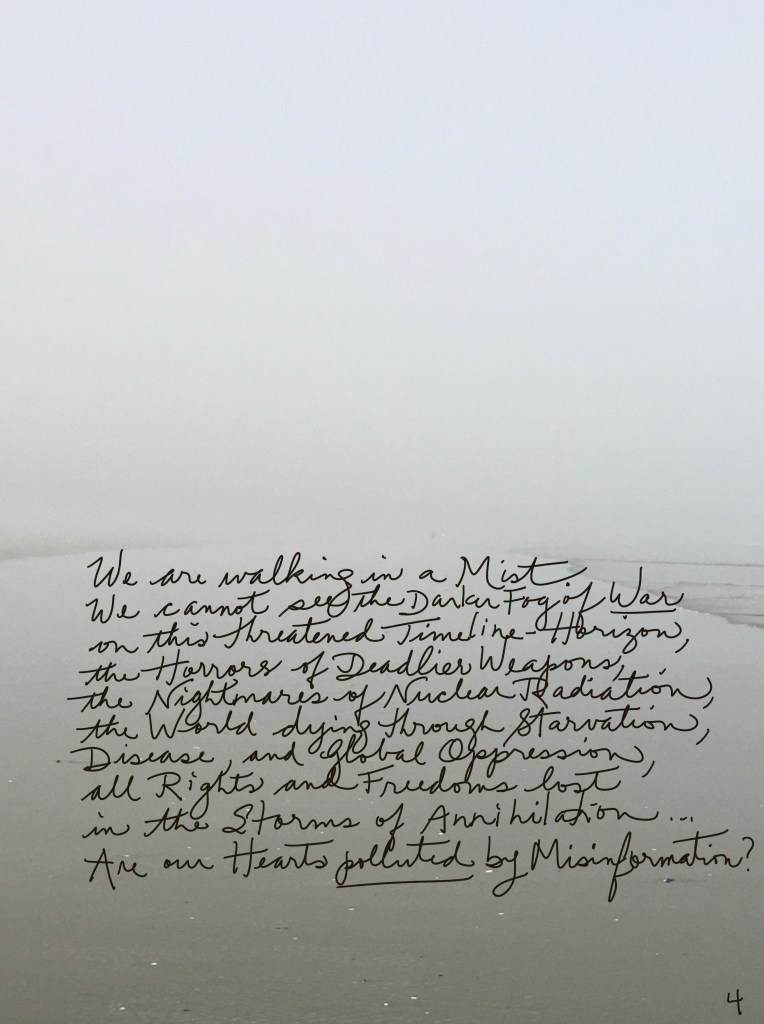 We are walking in a Mist.
We cannot see the Darker Fog of War
on this threatened Timeline-Horizon,
the Horrors of Deadlier Weapons,
the Nightmares of Nuclear Radiation,
the World dying through Starvation,
Disease, and Global Oppression,
all Rights and Freedoms lost
in the Storms of Annihilation...
Are our Hearts polluted by Misinformation?
4